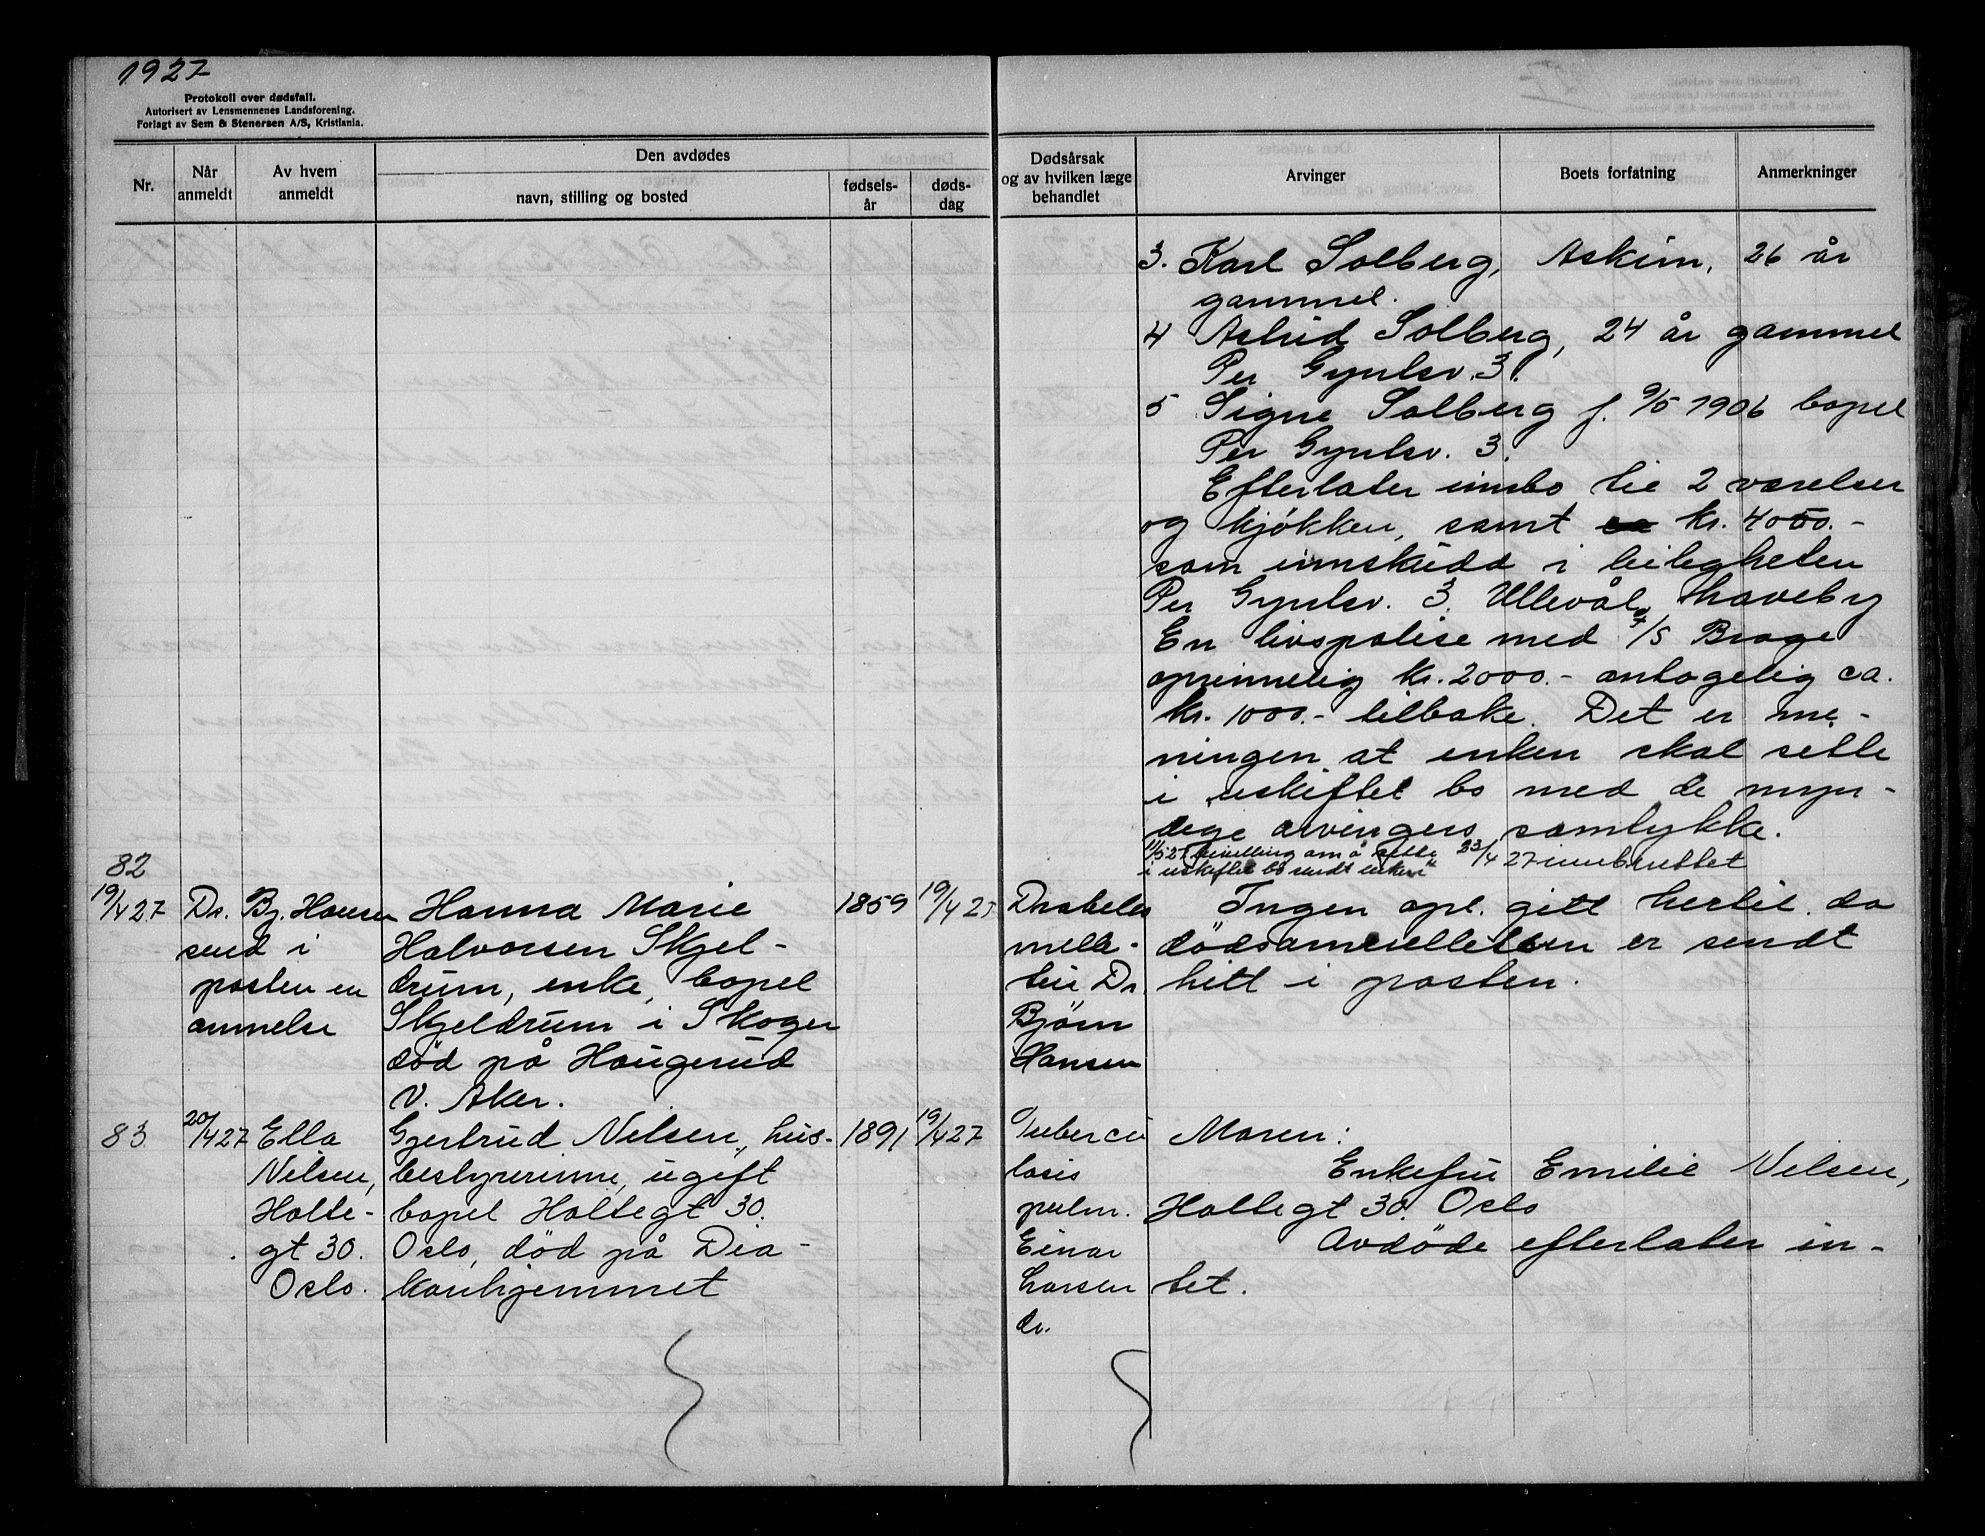 1927
Protokoll over dødsfall.
Autorisert av Lensmennenes Landsforening.
Forlagt av Sem & Stenersen A/S, Kristiania.
Nr.
Når anmeldt
Av hvem anmeldt
Den avdødes
navn, stilling og bosted
fødsels-år
døds-dag
Dødsårsak og av hvilken læge behandlet
Arvinger
Boets forfatning
Anmerkninger
3. Karl Solberg, Askim, 26 år
gammel.
4 Astrid Solberg, 24 år gammel
Per Gyntsv. 3.
5 Signe Solberg f. 9/5 1906 bopel
Per Gyntsv. 3.
Efterlater innbo til 2 værelser
og kjøkken, samt ca kr. 4000.-
som innskudd i leiligheten
Per Gyntsv. 3. Ullevål Haveby
En livspolise med A/S Brage
oprinnelig kr. 2000.- antagelig ca.
kr. 1000.- tilbake. Det er me-
ningen at enken skal sitte
i uskiftet bo med de myn-
dige arvingers samtykke.
11/5 27 bevilling om å sitte 23/4 27 innberettet
i uskiftet bo sendt enken
82
19/4 27
Dr. Bj. Hansen
send i
posten en
anmelse
Hanna Marie
Halvorsen Skjel-
drum, enke, bopel
Skjeldrum i Skoger
død på Haugerud
V. Aker.
1859
19/4 27
Diabetes
melli-
tus Dr.
Bjørn
Hansen
Ingen opl. gitt hertil da
dødsanmeldelsen er sendt
hitt i posten.
83
20/4 27
Ella
Nilsen,
Holte-
gt 30.
Oslo.
Gjertrud Nilsen, hus-
bestyrerinne, ugift
bopel Holtegt 30.
Oslo, død på Dia-
konhjemmet
1891
19/4 27
Tubercu
losis
pulm.
Einar
Larsen
dr.
Moren:
Enkefru Emilie Nilsen,
Holtegt 30. Oslo
Avdøde efterlater in-
tet.